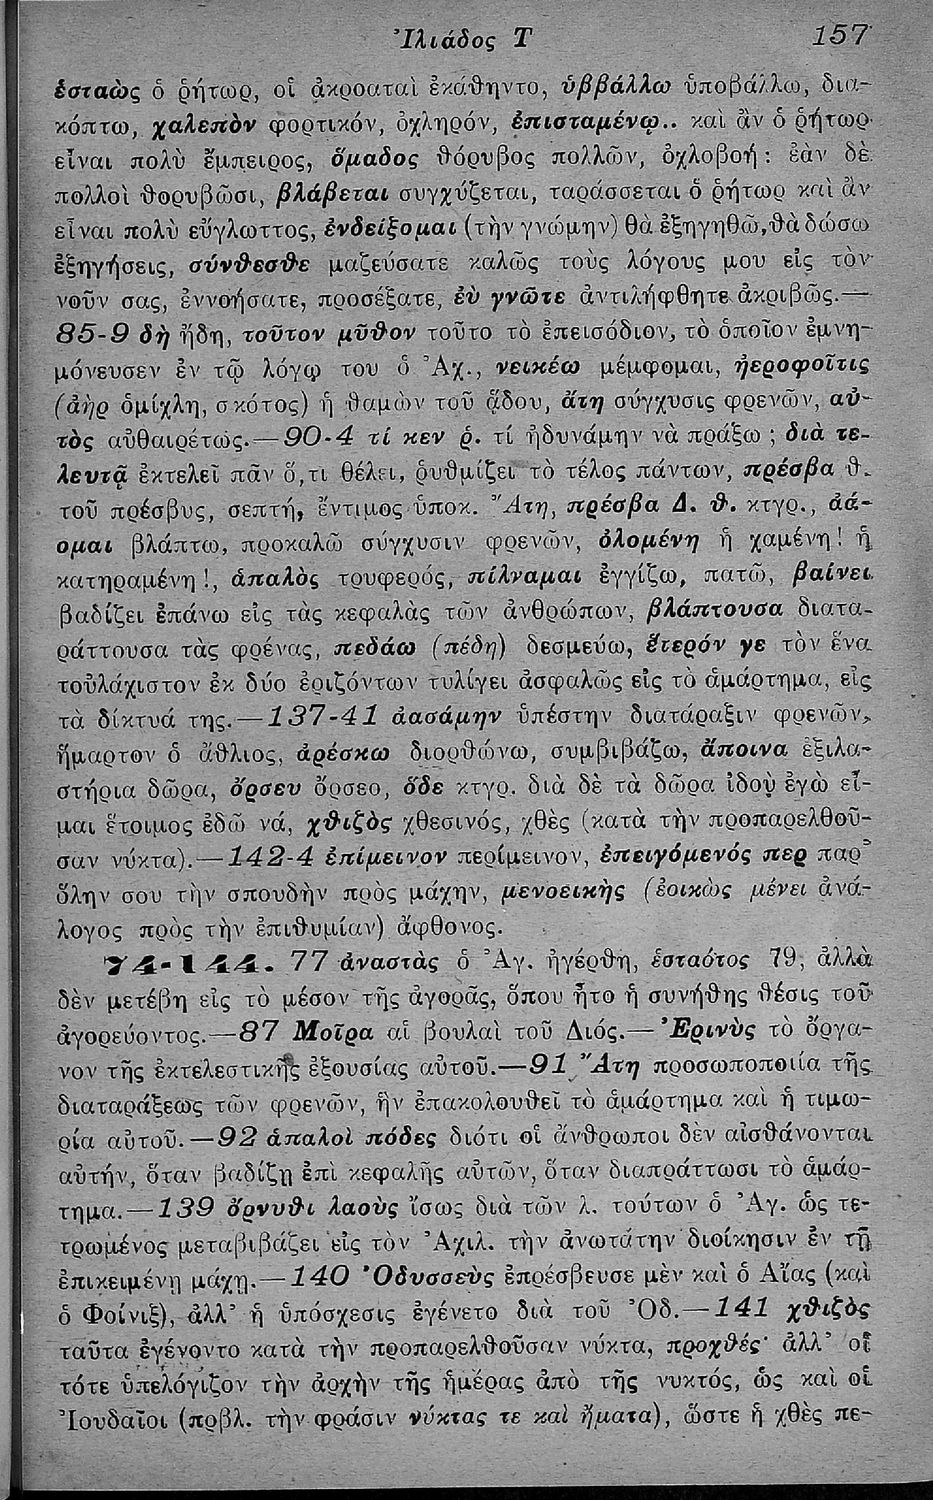 Ἰλιάδος Τ 157
ἑσταὼς ὁ ῥήτωρ, οἱ ἀκροαταὶ ἐκάθηντο, ὑββάλλω ὑποβάλλω, δια-
κόπτω, χαλεπὸν φορτικόν, ὀχληρόν, ἐπισταμένῳ.. καὶ ἂν ὁ ῥήτωρ
εἶναι πολὺ ἔμπειρος, ὅμαδος θόρυβος πολλῶν, ὀχλοβοή: ἐὰν δὲ
πολλοὶ θορυβῶσι, βλάβεται συγχύζεται, ταράσσεται ὁ ῥήτωρ καὶ ἂν
εἶναι πολὺ εὔγλωττος, ἐνδείξομαι (τὴν γνώμην) θὰ ἐξηγηθῶ, θὰ δώσω
ἐξηγήσεις, σύνθεσθε μαζεύσατε καλῶς τοὺς λόγους μου εἰς τὸν
νοῦν σας, ἐννοήσατε, προσέξατε, ἐὺ γνῶτε ἀντιλήφθητε ἀκριβῶς.—
85-9 δὴ ἤδη, τοῦτον μῦθον τοῦτο τὸ ἐπεισόδιον, τὸ ὁποῖον ἐμνη-
μόνευσεν ἐν τῷ λόγῳ του ὁ Ἀχ., νεικέω μέμφομαι, ἠεροφοῖτις
(ἀὴρ ὁμίχλη, σκότος) ἡ θαμὼν τοῦ ᾅδου, ἄτη σύγχυσις φρενῶν, αὐ-
τὸς αὐθαιρέτως.—90-4 τί κεν ῥ. τί ἠδυνάμην νὰ πράξω; διὰ τε-
λευτᾷ ἐκτελεῖ πᾶν ὅ,τι θέλει, ῥυθμίζει τὸ τέλος πάντων, πρέσβα θ.
τοῦ πρέσβυς, σεπτή, ἔντιμος ὑποκ. Ἄτη, πρέσβα Δ. θ. κτγρ., ἀά-
ομαι βλάπτω, προκαλῶ σύγχυσιν φρενῶν, ὀλομένη ἡ χαμένη! ἡ
κατηραμένη!, ἁπαλὸς τρυφερός, πίλναμαι ἐγγίζω, πατῶ, βαίνει
βαδίζει ἐπάνω εἰς τὰς κεφαλὰς τῶν ἀνθρώπων, βλάπτουσα διατα-
ράττουσα τὰς φρένας, πεδάω (πέδη) δεσμεύω, ἕτερόν γε τὸν ἕνα
τοὐλάχιστον ἐκ δύο ἐριζόντων τυλίγει ἀσφαλῶς εἰς τὸ ἁμάρτημα, εἰς
τὰ δίκτυά της.—137-41 ἀασάμην ὑπέστην διατάραξιν φρενῶν,
ἥμαρτον ὁ ἄθλιος, ἀρέσκω διορθώνω, συμβιβάζω, ἄποινα ἐξιλα-
στήρια δῶρα, ὄρσευ ὄρσεο, ὅδε κτγρ. διὰ δὲ τὰ δῶρα ἰδοὺ ἐγὼ εἶ-
μαι ἕτοιμος ἐδῶ νά, χθιζὸς χθεσινός, χθὲς (κατὰ τὴν προπαρελθοῦ-
σαν νύκτα).—142-4 ἐπίμεινον περίμεινον, ἐπειγόμενός περ παρ'
ὅλην σου τὴν σπουδὴν πρὸς μάχην, μενοεικὴς (ἐοικὼς μένει ἀνά-
λογος πρὸς τὴν ἐπιθυμίαν) ἄφθονος.
74-144. 77 ἀναστὰς ὁ Ἀγ. ἠγέρθη, ἑσταότος 79, ἀλλὰ
δὲν μετέβη εἰς τὸ μέσον τῆς ἀγορᾶς, ὅπου ἦτο ἡ συνήθης θέσις τοῦ
ἀγορεύοντος.—87 Μοῖρα αἱ βουλαὶ τοῦ Διός.—Ἐρινὺς τὸ ὄργα-
νον τῆς ἐκτελεστικῆς ἐξουσίας αὐτοῦ.—91 Ἄτη προσωποποιία τῆς
διαταράξεως τῶν φρενῶν, ἣν ἐπακολουθεῖ τὸ ἁμάρτημα καὶ ἡ τιμω-
ρία αὐτοῦ.—92 ἁπαλοὶ πόδες διότι οἱ ἄνθρωποι δὲν αἰσθάνονται
αὐτήν, ὅταν βαδίζῃ ἐπὶ κεφαλῆς αὐτῶν, ὅταν διαπράττωσι τὸ ἁμάρ-
τημα.—139 ὄρνυθι λαοὺς ἴσως διὰ τῶν λ. τούτων ὁ Ἀγ. ὡς τε-
τρωμένος μεταβιβάζει εἰς τὸν Ἀχιλ. τὴν ἀνωτάτην διοίκησιν ἐν τῇ
ἐπικειμένῃ μάχῃ.—140 Ὀδυσσεὺς ἐπρέσβευσε μὲν καὶ ὁ Αἴας (καὶ
ὁ Φοίνιξ), ἀλλ' ἡ ὑπόσχεσις ἐγένετο διὰ τοῦ Ὀδ.—141 χθιζὸς
ταῦτα ἐγένοντο κατὰ τὴν προπαρελθοῦσαν νύκτα, προχθές· ἀλλ' οἱ
τότε ὑπελόγιζον τὴν ἀρχὴν τῆς ἡμέρας ἀπὸ τῆς νυκτός, ὡς καὶ οἱ
Ἰουδαῖοι (πρβλ. τὴν φράσιν νύκτας τε καὶ ἤματα), ὥστε ἡ χθὲς πε-